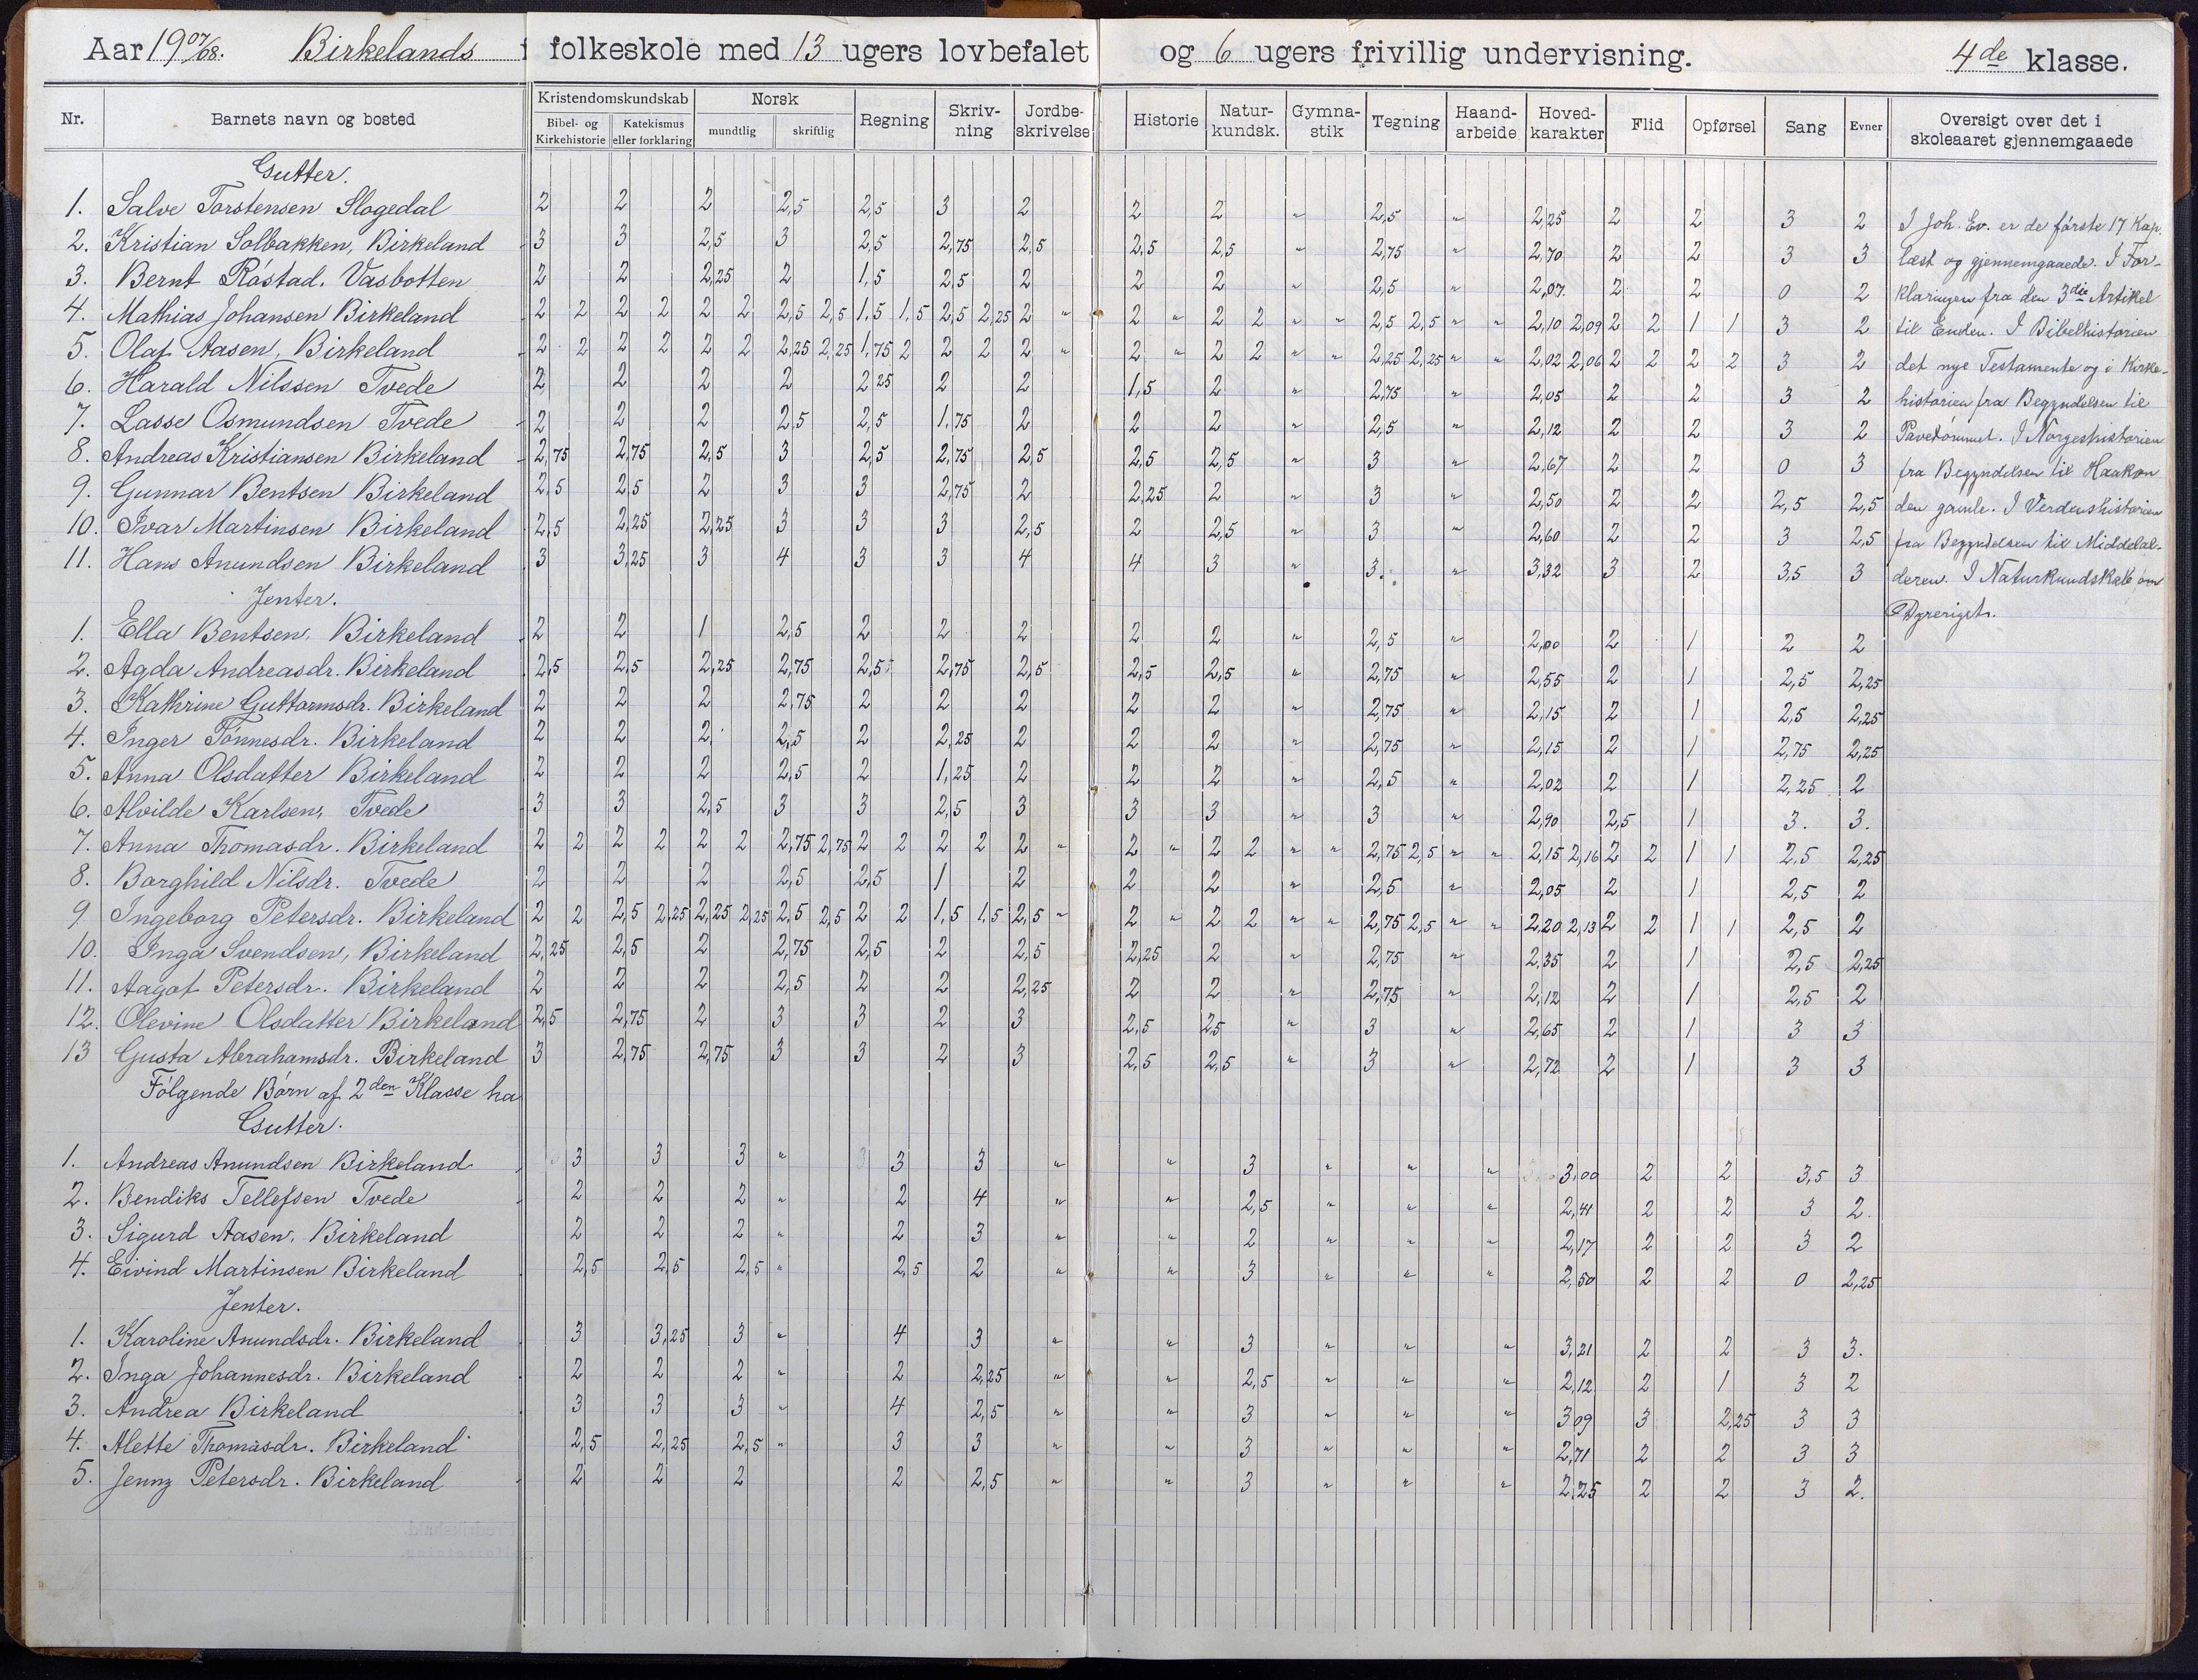 Aar 1907/08. Birkelands folkeskole med 13 ugers lovbefalet og 6 ugers frivillig undervisning. 4de klasse.
Nr. Barnets navn og bosted Kristendomskundskab Norsk Regning Skriv-ning Jordbe-skrivelse Historie Natur-kundsk. Gymna-stik Tegning Haand-arbeide Hoved-karakter Flid Opførsel Sang Evner Oversigt over det i skoleaaret gjennemgaaede
Bibel- og Kirkehistorie Katekismus eller forklaring mundtlig skriftlig
Gutter.
1. Salve Torstensen Slogedal 2 2 2 2,5 2,5 3 2 2 2 " 2,5 " 2,25 2 2 3 2
2. Kristian Solbakken, Birkeland 3 3 2,5 3 2,5 2,75 2,5 2,5 2,5 " 2,75 " 2,70 2 2 3 3
3. Bernt Røstad. Vasbotten 2 2 2,25 2 1,5 2,5 2 2 2 " 2,5 " 2,07 2 2 0 2
4. Mathias Johansen Birkeland 2 2 2 2 2 2 2,5 2,5 1,5 1,5 2,5 2,25 2 " 2 " 2 2 " " 2,5 2,5 " " 2,10 2,09 2 2 1 1 3 2
5. Olaf Aasen, Birkeland 2 2 2 2 2 2 2,25 2,25 1,75 2 2 2 2 " 2 " 2 2 " " 2,25 2,25 " " 2,02 2,06 2 2 2 2 3 2
6. Harald Nilssen Tvede 2 2 2 2 2,25 2 2 1,5 2 " 2,75 " 2,05 2 2 3 2
7. Lasse Osmundsen Tvede 2 2 2 2,5 2,5 1,75 2 2 2 " 2,5 " 2,12 2 2 3 2
8. Andreas Kristiansen Birkeland 2,75 2,75 2,5 3 2,5 2,75 2,5 2,5 2,5 " 3 " 2,67 2 2 0 3
9. Gunnar Bentsen Birkeland 2,5 2,5 2 3 3 2,75 2 2,25 2 " 3 " 2,50 2 2 2,5 2,5
10. Ivar Martinsen Birkeland 2,5 2,25 2,25 3 3 3 2,5 2 2,5 " 3 " 2,60 2 2 3 2,5
11. Hans Anundsen Birkeland 3 3,25 3 4 3 3 4 4 3 " 3. " 3,32 3 2 3,5 3
I Joh. Ev. er de første 17 Kap.
læst og gjennemgaaede. I For-
klaringen fra den 3die Artikel
til Enden. I Bibelhistorien
det nye Testamente og i Kirke-
historien fra Begyndelsen til
Pavedømmet. I Norgeshistorien
fra Begyndelsen til Haakon
den gamle. I Verdenshistorien
fra Begyndelsen til Middelal-
deren. I Naturkundskab om
Dyreriget.
Jenter.
1. Ella Bentsen, Birkeland 2 2 1 2,5 2 2 2 2 2 " 2,5 " 2,00 2 1 2 2
2. Agda Andreasdr. Birkeland 2,5 2,5 2,25 2,75 2,5 2,75 2,5 2,5 2,5 " 2,75 " 2,55 2 1 2,5 2,25
3. Kathrine Guttormsdr. Birkeland 2 2 2 2,75 2 2 2 2 2 " 2,75 " 2,15 2 1 2,5 2,25
4. Inger Tønnesdr. Birkeland 2 2 2 2,5 2 2,25 2 2 2 " 2,75 " 2,15 2 1 2,75 2,25
5. Anna Olsdatter Birkeland 2 2 2 2,5 2 1,25 2 2 2 " 2,5 " 2,02 2 1 2,25 2
6. Alvilde Karlsen, Tvede 3 3 2,5 3 3 2,5 3 3 3 " 3 " 2,90 2,5 1 3. 3.
7. Anna Thomasdr. Birkeland 2 2 2 2 2 2 2,75 2,75 2 2 2 2 2 " 2 " 2 2 " " 2,75 2,5 " " 2,15 2,16 2 2 1 1 2,5 2,25
8. Borghild Nilsdr. Tvede 2 2 2 2,5 2,5 1 2 2 2 " 2,5 " 2,05 2 1 2,5 2
9 Ingeborg Petersdr. Birkeland 2 2 2,5 2,25 2,25 2,25 2,5 2,5 2 2 1,5 1,5 2,5 " 2 " 2 2 " " 2,75 2,5 " " 2,20 2,13 2 2 1 1 2,5 2
10. Inga Svendsen, Birkeland 2,25 2,5 2 2,75 2,5 2 2,5 2,25 2 " 2,75 " 2,35 2 1 2,5 2,25
11. Aagot Petersdr. Birkeland 2 2 2 2,5 2 2 2,25 2 2 " 2,75 " 2,12 2 1 2,5 2
12. Olevine Olsdatter Birkeland 2,5 2,75 2 3 3 2 3 2,5 2,5 " 3 " 2,65 2 1 3 3
13 Gusta Abrahamsdr. Birkeland 3 2,75 2,75 3 3 2 3 2,5 2,5 " 3 " 2,72 2 1 3 3
Følgende Børn af 2den Klasse ha
Gutter.
1. Andreas Anundsen Birkeland 3 3 3 " 3 3 " " 3 " " " 3,00 2 2 3,5 3
2. Bendiks Tellefsen Tvede 2 2 2 " 2 4 " " 2,5 " " " 2,41 2 2 3 2.
3. Sigurd Aasen, Birkeland 2 2 2 " 2 3 " " 2 " " " 2,17 2 2 3 2
4. Eivind Martinsen Birkeland 2,5 2,5 2,5 " 2,5 2 " " 3 " " " 2,50 2 2 0 2,25
Jenter.
1. Karoline Anundsdr. Birkeland 3 3,25 3 " 4 3 " " 3 " " " 3,21 2 2 3 3.
2. Inga Johannesdr. Birkeland 2 2 2 " 2 2,25 " " 2,5 " " " 2,12 2 1 3 2
3. Andrea Birkeland 3 3 3 " 4 2,5 " " 3 " " " 3,09 3 2,25 3 3
4. Alette Thomasdr. Birkeland 2,5 2,25 2,5 " 3 3 " " 3 " " " 2,71 2 2 3 3
5. Jenny Petersdr. Birkeland 2 2 2 2 2,5 " " 3 " " " 2,25 2 2 3 2.